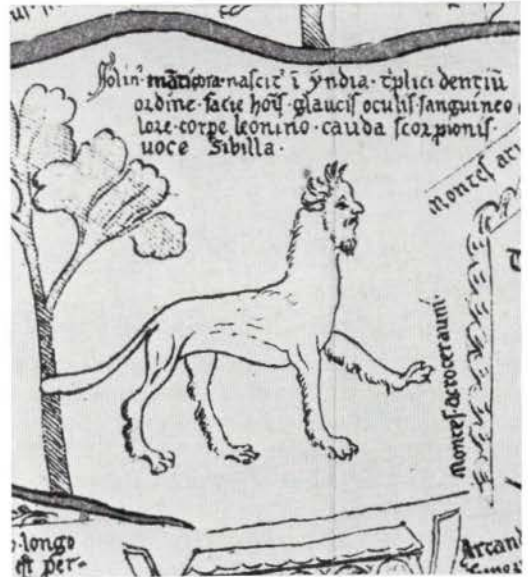 Solin͛ mãticora nascit᷑ ī ẏndia · tͥplici dentiū
ordine · facie hoīs · glaucis oculis · sanguineo
lore · corpe leonino · cauda scorpionis ·
uoce Sibilla ·
Montes
Montes · acroceraunī ·
longo
est per-